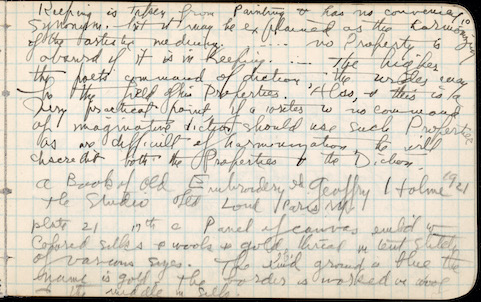 Keeping is taken from Painting & has no convenient
synonym. but it may be explained as the harmonizing
of the artistic medium. .... no Property is
absurd if it is in Keeping. ... The higher
the poets command of diction the wider may
be the field of his Properties. Also, & this is a
very practical point, if a writer w no command
of imaginative diction should use such Properties
as are difficult of harmonization he will
discredit both the Properties & the Diction.
A Book of Old Embroidery ed Geoffry Holme 1921
the Studio Ltd Lond Paris NY
plate 21 17th c Panel of canvas emb'd w
colored silks & wools & gold thread in tent stitch
of various sizes. The ground a blue the
frame is gold the border is worked in wool
& the middle in silk.